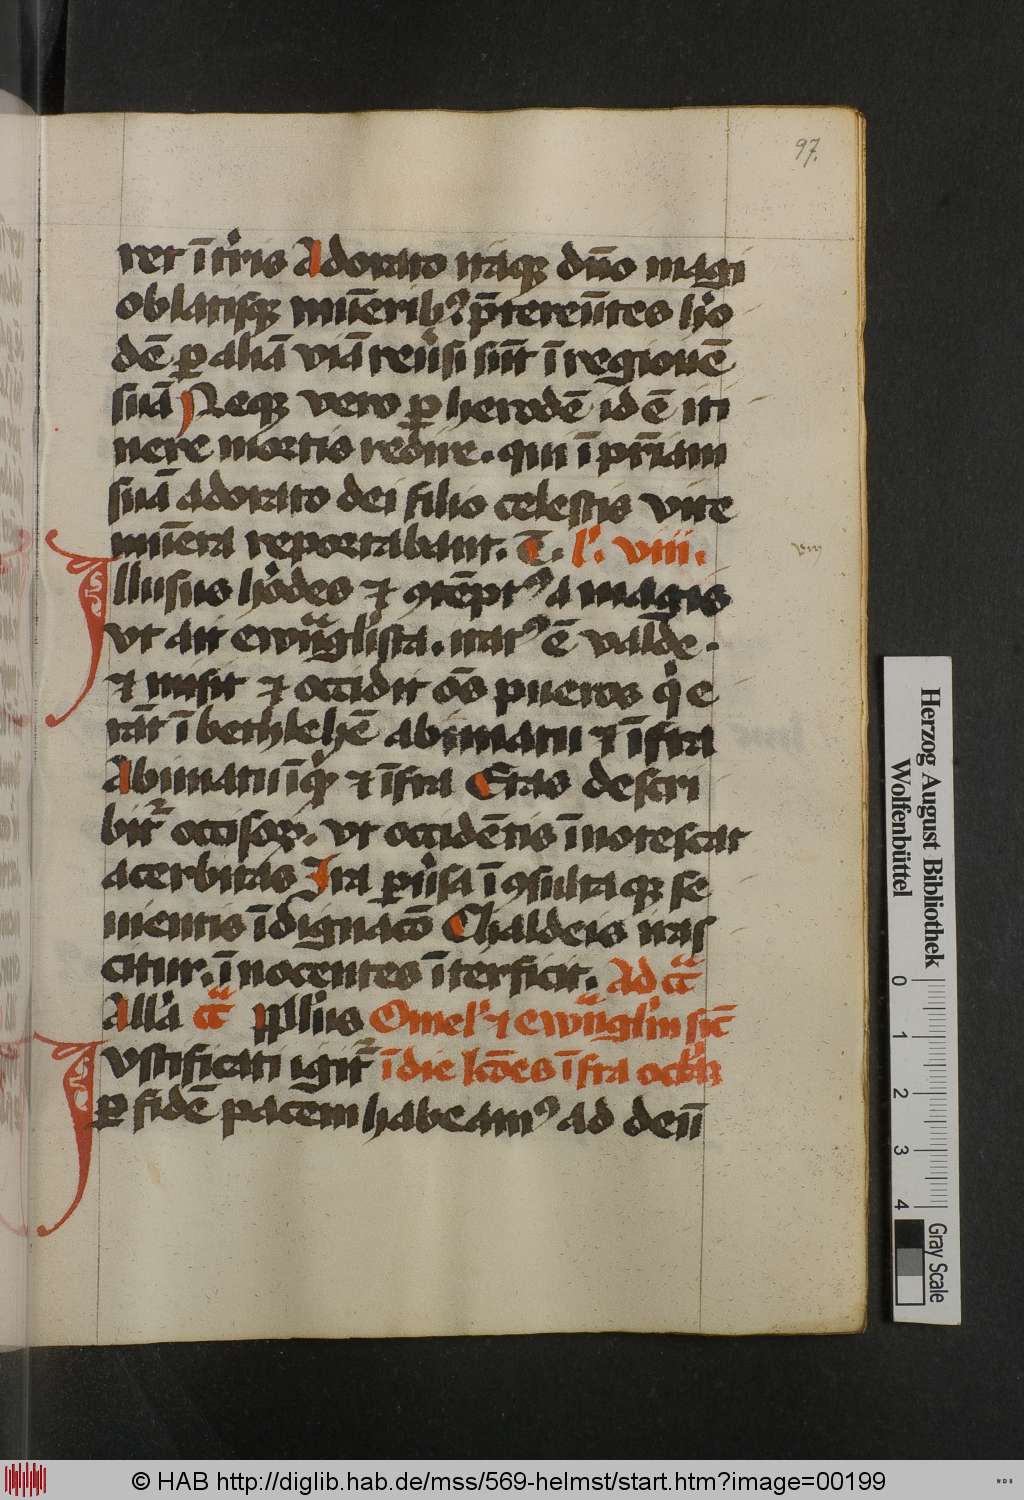 97.
ret ī tr̄is Adorato itaq dn̄o magi
oblatisq mūerib⁹ p̄tereūtes h'o
dē ꝑ aliā viā reu'si sūt ī regionē
suā Neq vero ꝑ herodē id ē iti
nere mortis redire. qui ī pr̄iam
suā adorato dei filio celestis vite
mūera reportabant. T. l'. viii.
viij
Illusus h'odes ⁊ ꝯtēpt⁹ a magis
vt ait ewāgl'ista. irat⁹ ē valde.
⁊ misit ⁊ occidit oēs pueros q̇ e
rāt ī bethlehē abimatu ⁊ īfra
Abimatu īq̇ ⁊ īfra Etas descri
bit᷑ occisoꝝ. vt occidētis īnotescat
acerbitas Ira ꝑu'sa īꝯsultaq se
uientis īdignacō Chaldeis iras
citur. īnocentes īterficit. Ad cͣ
All'a cͣ p̄l'ius Omel' ⁊ ewāgl'm sic̄
Iustificati igit᷑ ī die l'c̄des īfra oct'
ꝑ fidē pacem habeam⁹ ad deū
Herzog August Bibliothek
Wolfenbüttel
0 1 2 3 4
Gray Scale
© HAB http://diglib.hab.de/mss/569-helmst/start.htm?image=00199